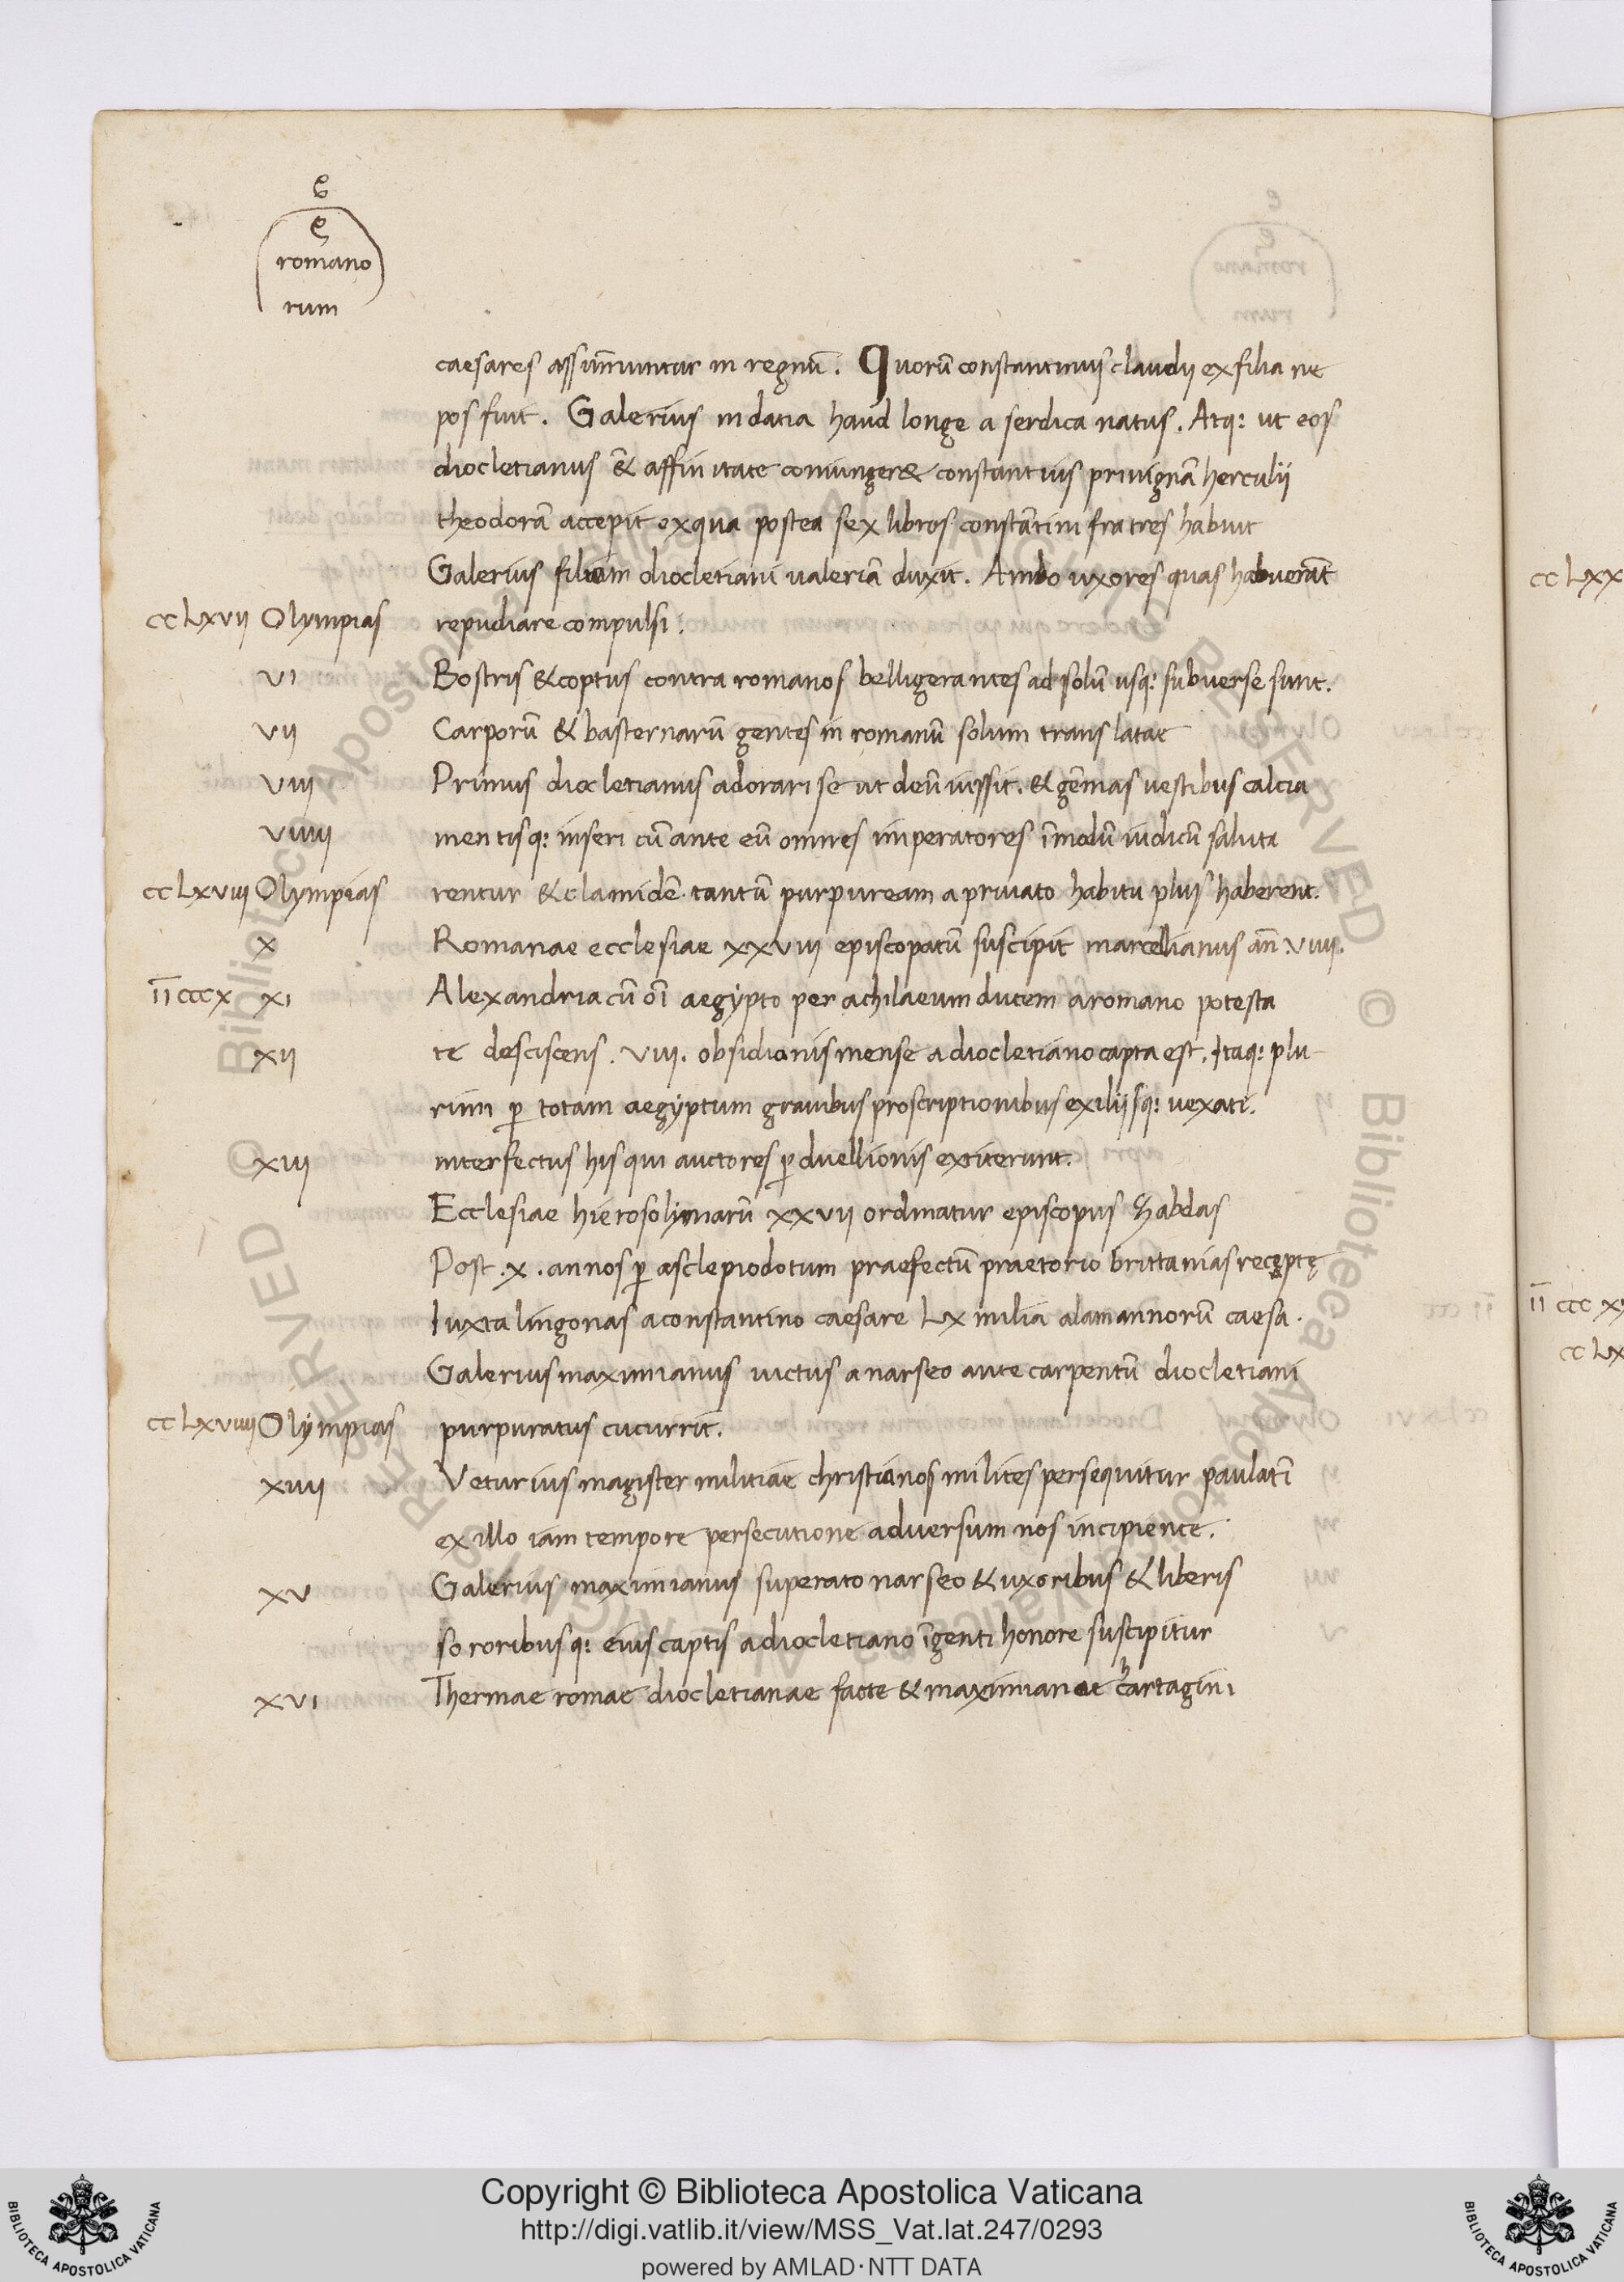 romano
rum
caesares assūmuntur in regnū. Quorū constantinus claudii ex filia ne
pos fuit. Galerius in datia haud longe a serdica natus. Atq: ut eos
diocletianus & affinitate coniunger& constantius priuignā herculii
theodorā accepit ex qua postea sex libros constātini fratres habuit
Galerius filiam diocletiani ualeriā duxit. Ambo uxores quas habuerāt
cclxvii Olympias repudiare compulsi.
vi Bostris & coptus contra romanos belligerantes ad solū usq: subuerse sunt.
vii Carporū & basternarū gentes in romanū solum translatae
viii Primus diocletianus adorari se ut deū iussit. & gēmas uestibus calcia
viiii mentisq: inseri cū ante eū omnes imperatores ī modū iudicū saluta
cclxviii Olympias rentur & clamidē tantū purpuream a priuato habitu plus haberent.
x Romanae ecclesiae xxviii episcopatū suscipit marcellianus añ. viiii.
īī cccx xi Alexandria cū oī aegypto per achilaeum ducem a romano potesta
xii te desciscens. viii. obsidionis mense a diocletiano capta est. Itaq: plu-
rimi p totam aegyptum grauibus proscriptionibus exiliisq: uexati.
xiii interfectus his qui auctores pduellionis extiterunt.
Ecclesiae hierosolimarū xxvii ordinatur episcopus Habdas
Post .x. annos p asclepiodotum praefectū praetorio brittanias receptę
Iuxta lingonas a constantino caesare Lx milia alamannorū caesa.
Galerius maximianus uictus a narseo ante carpentū diocletiani
cclxviiii Olympias purpuratus cucurrit.
xiiii Veturius magister militiae christianos milites persequitur paulatī
ex illo iam tempore persecutione aduersum nos incipiente.
xv Galerius maximianus superato narseo & uxoribus & liberis
sororibusq: eius captis a diocletiano īgenti honore suscipitur
xvi Thermae romae diocletianae facte & maximianae chartagini
cclxx
īī ccc xx
cclx
Copyright © Biblioteca Apostolica Vaticana
http://digi.vatlib.it/view/MSS_Vat.lat.247/0293
powered by AMLAD·NTT DATA
BIBLIOTECA APOSTOLICA VATICANA
BIBLIOTECA APOSTOLICA VATICANA